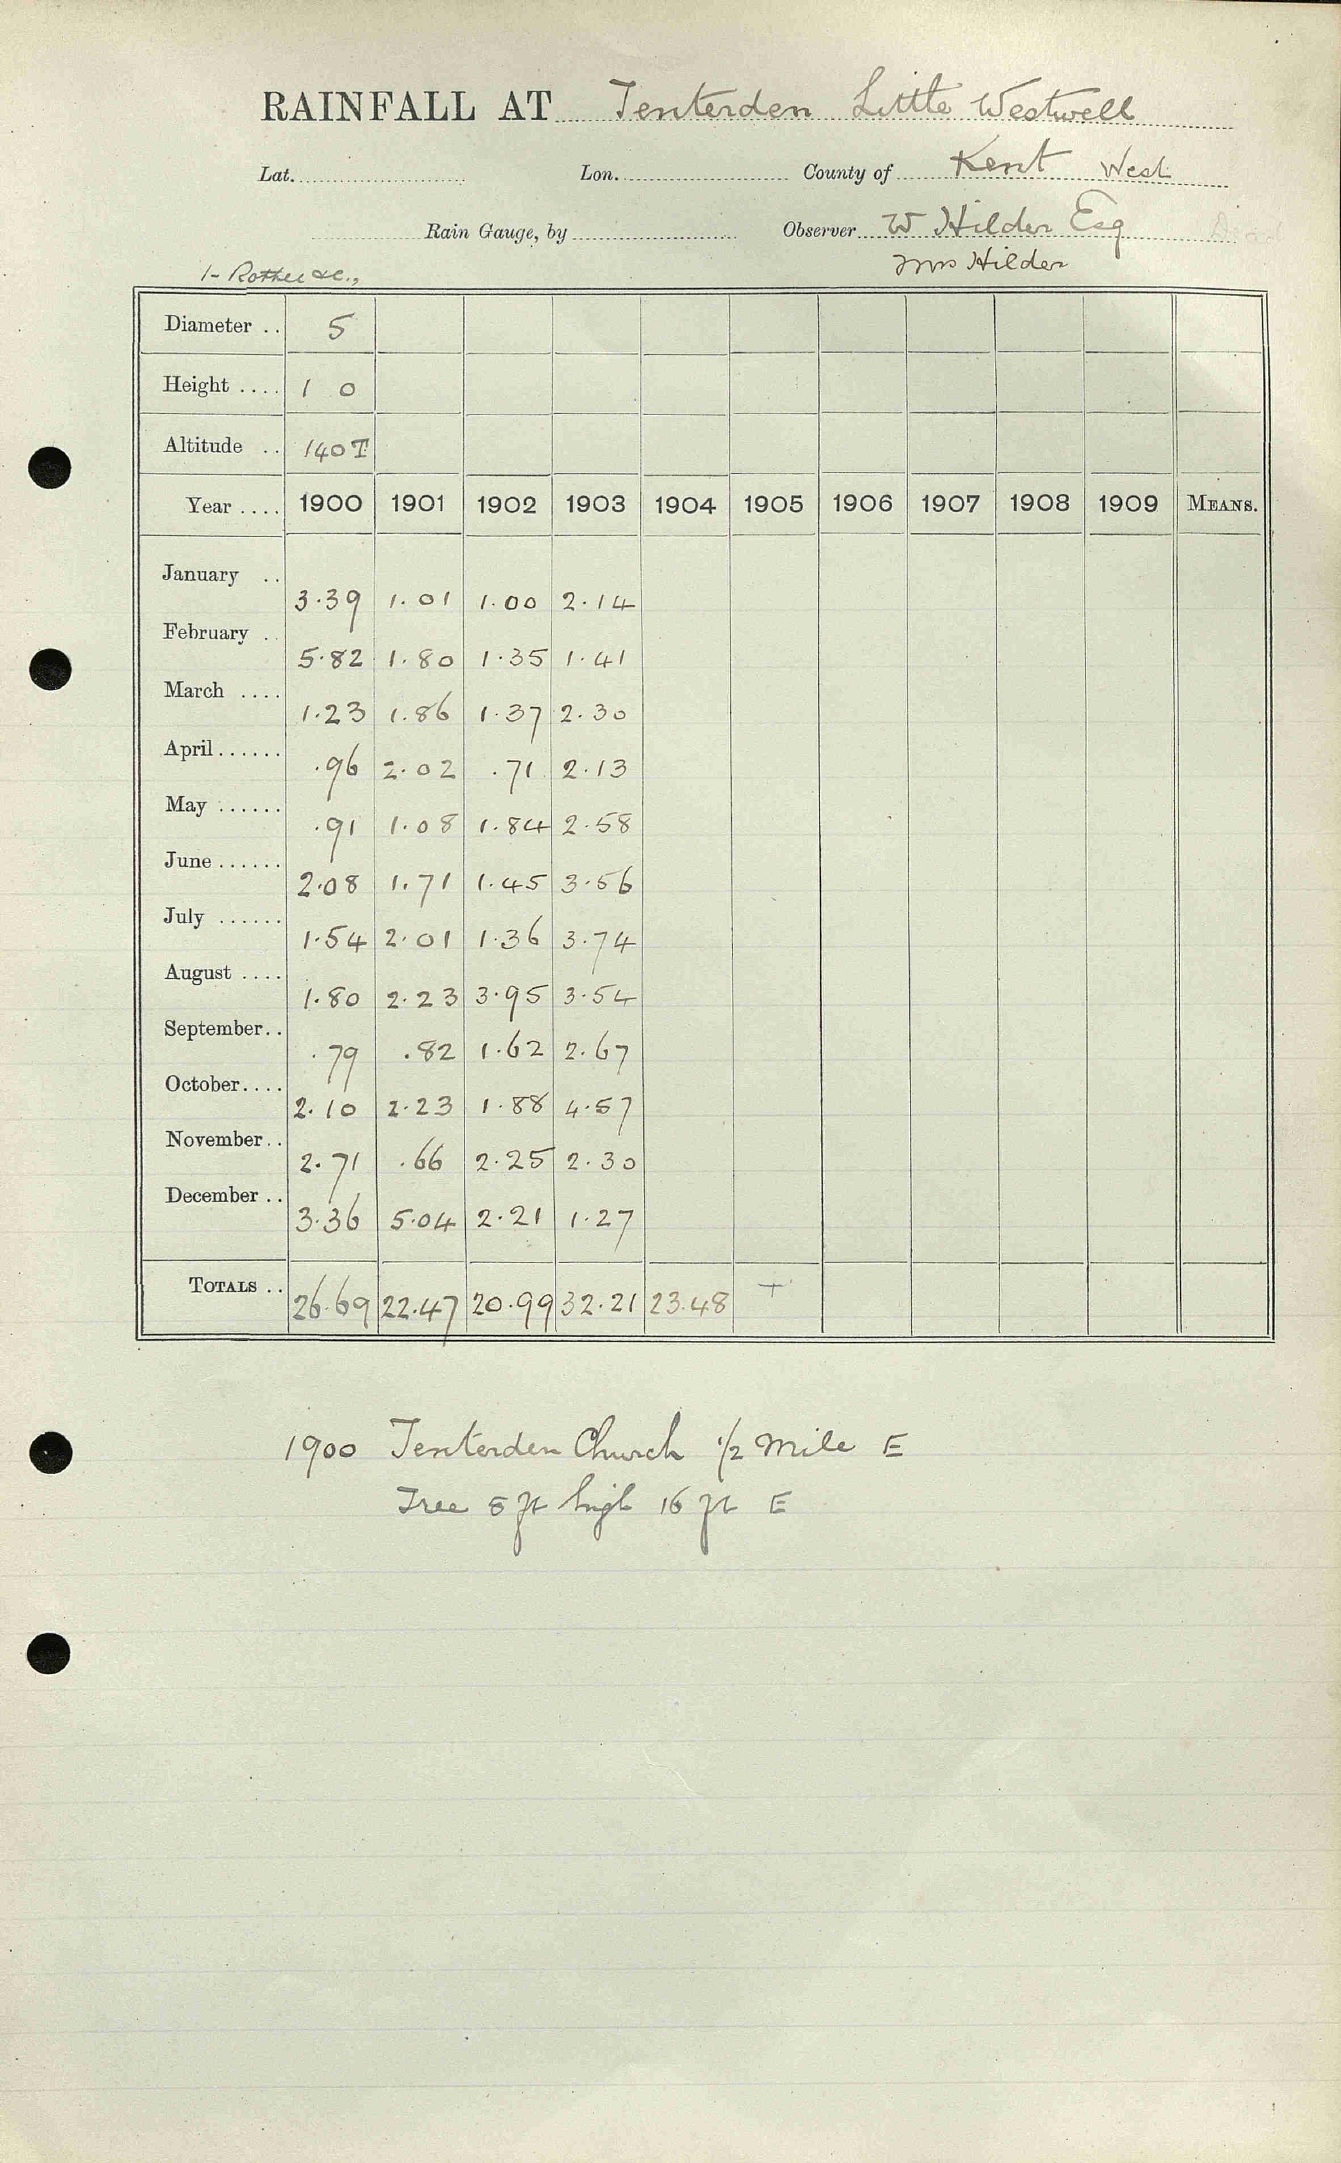 RAINFALL AT Tenterden Little Westwell
Lat. Lon. County of Kent West
Rain Gauge, by Observer W Hilder Esq Dead
1- Rother &c., Mrs Hilder
Diameter .. 5
Height .... 1 0
Altitude .. 140 T
Year .... 1900 1901 1902 1903 1904 1905 1906 1907 1908 1909 MEANS.
January .. 3.39 1.01 1.00 2.14
February .. 5.82 1.80 1.35 1.41
March .... 1.23 1.86 1.37 2.30
April...... .96 2.02 .71 2.13
May ...... .91 1.08 1.84 2.58
June...... 2.08 1.71 1.45 3.56
July ...... 1.54 2.01 1.36 3.74
August .... 1.80 2.23 3.95 3.54
September.. .79 .82 1.62 2.67
October.... 2.10 2.23 1.88 4.57
November.. 2.71 .66 2.25 2.30
December .. 3.36 5.04 2.21 1.27
TOTALS .. 26.69 22.47 20.99 32.21 23.48 +
1900 Tenterden Church 1/2 Mile E
Tree 8 ft high 16 ft E